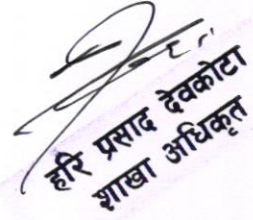 हरि प्रसाद देवकोटा
शाखा अधिकृत